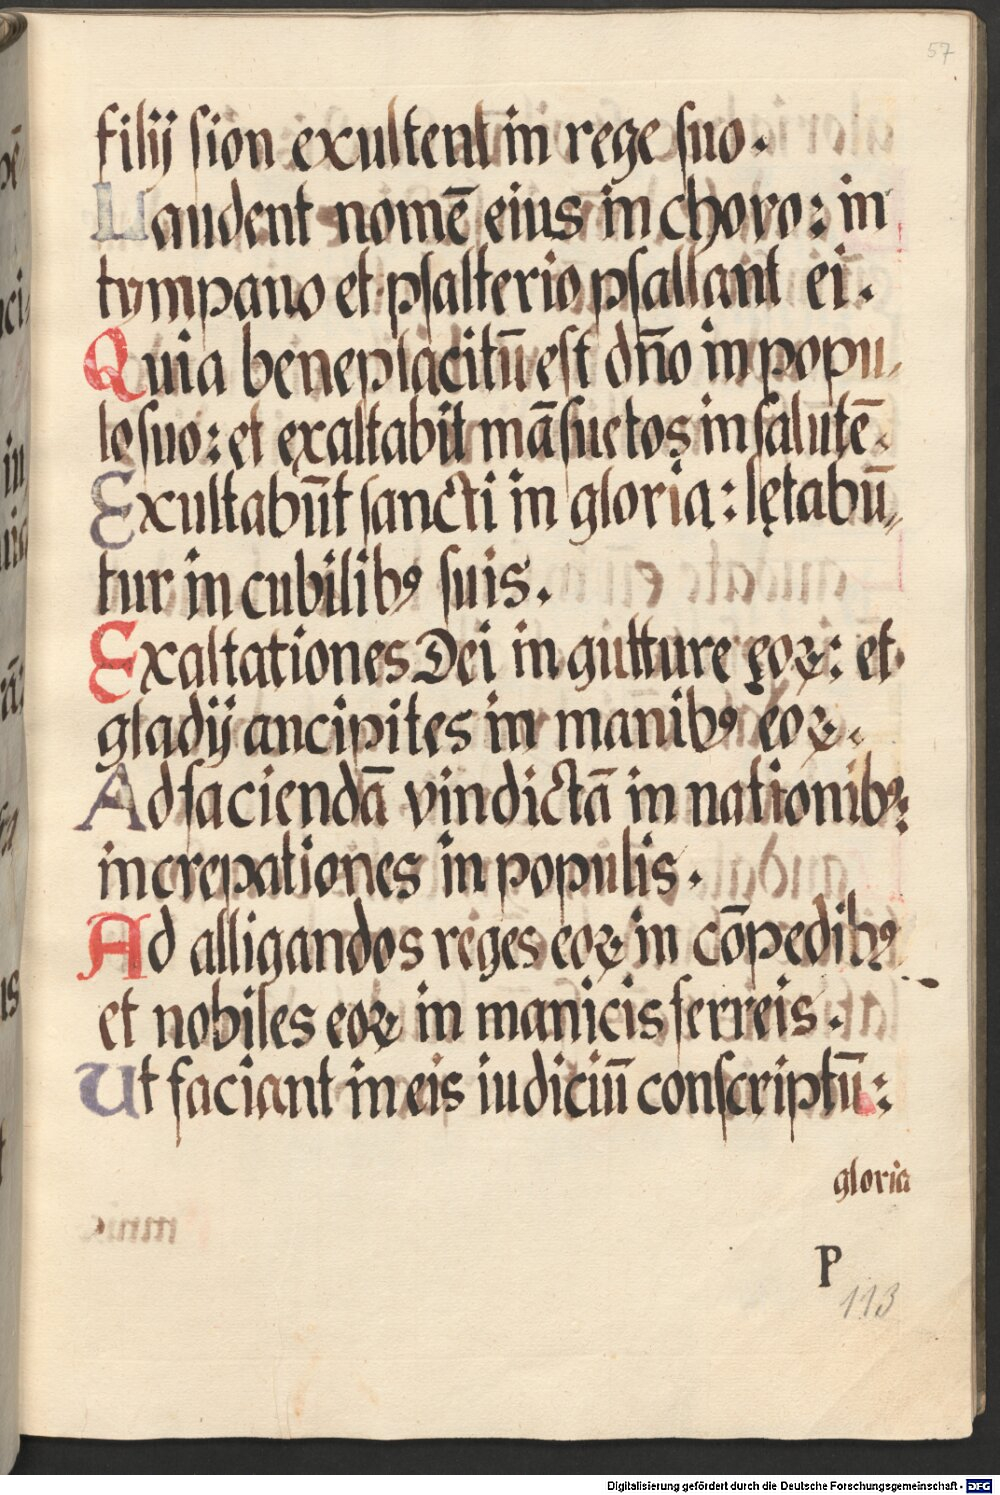 57
filij sion exultent in rege suo.
Laudent nomē eius in choro: in
tympano et psalterio psallant ei.
Quia beneplacitū est dn̄o in popu,
lo suo: et exaltabit māsuetos in salutē.
Exultabūt sancti in gloria: lętabū,,
tur in cubilibꝰ suis.
Exaltationes Dei in gutture eoꝝ: et
gladij ancipites in manibꝰ eoꝝ.
Ad faciendā vindictā in nationibꝰ:
increpationes in populis.
Ad alligandos reges eoꝝ in cōpedibꝰ
et nobiles eoꝝ in manicis ferreis.
Ut faciant in eis iudiciū conscriptū:
gloria
P
113
Digitalisierung gefördert durch die Deutsche Forschungsgemeinschaft - DFG